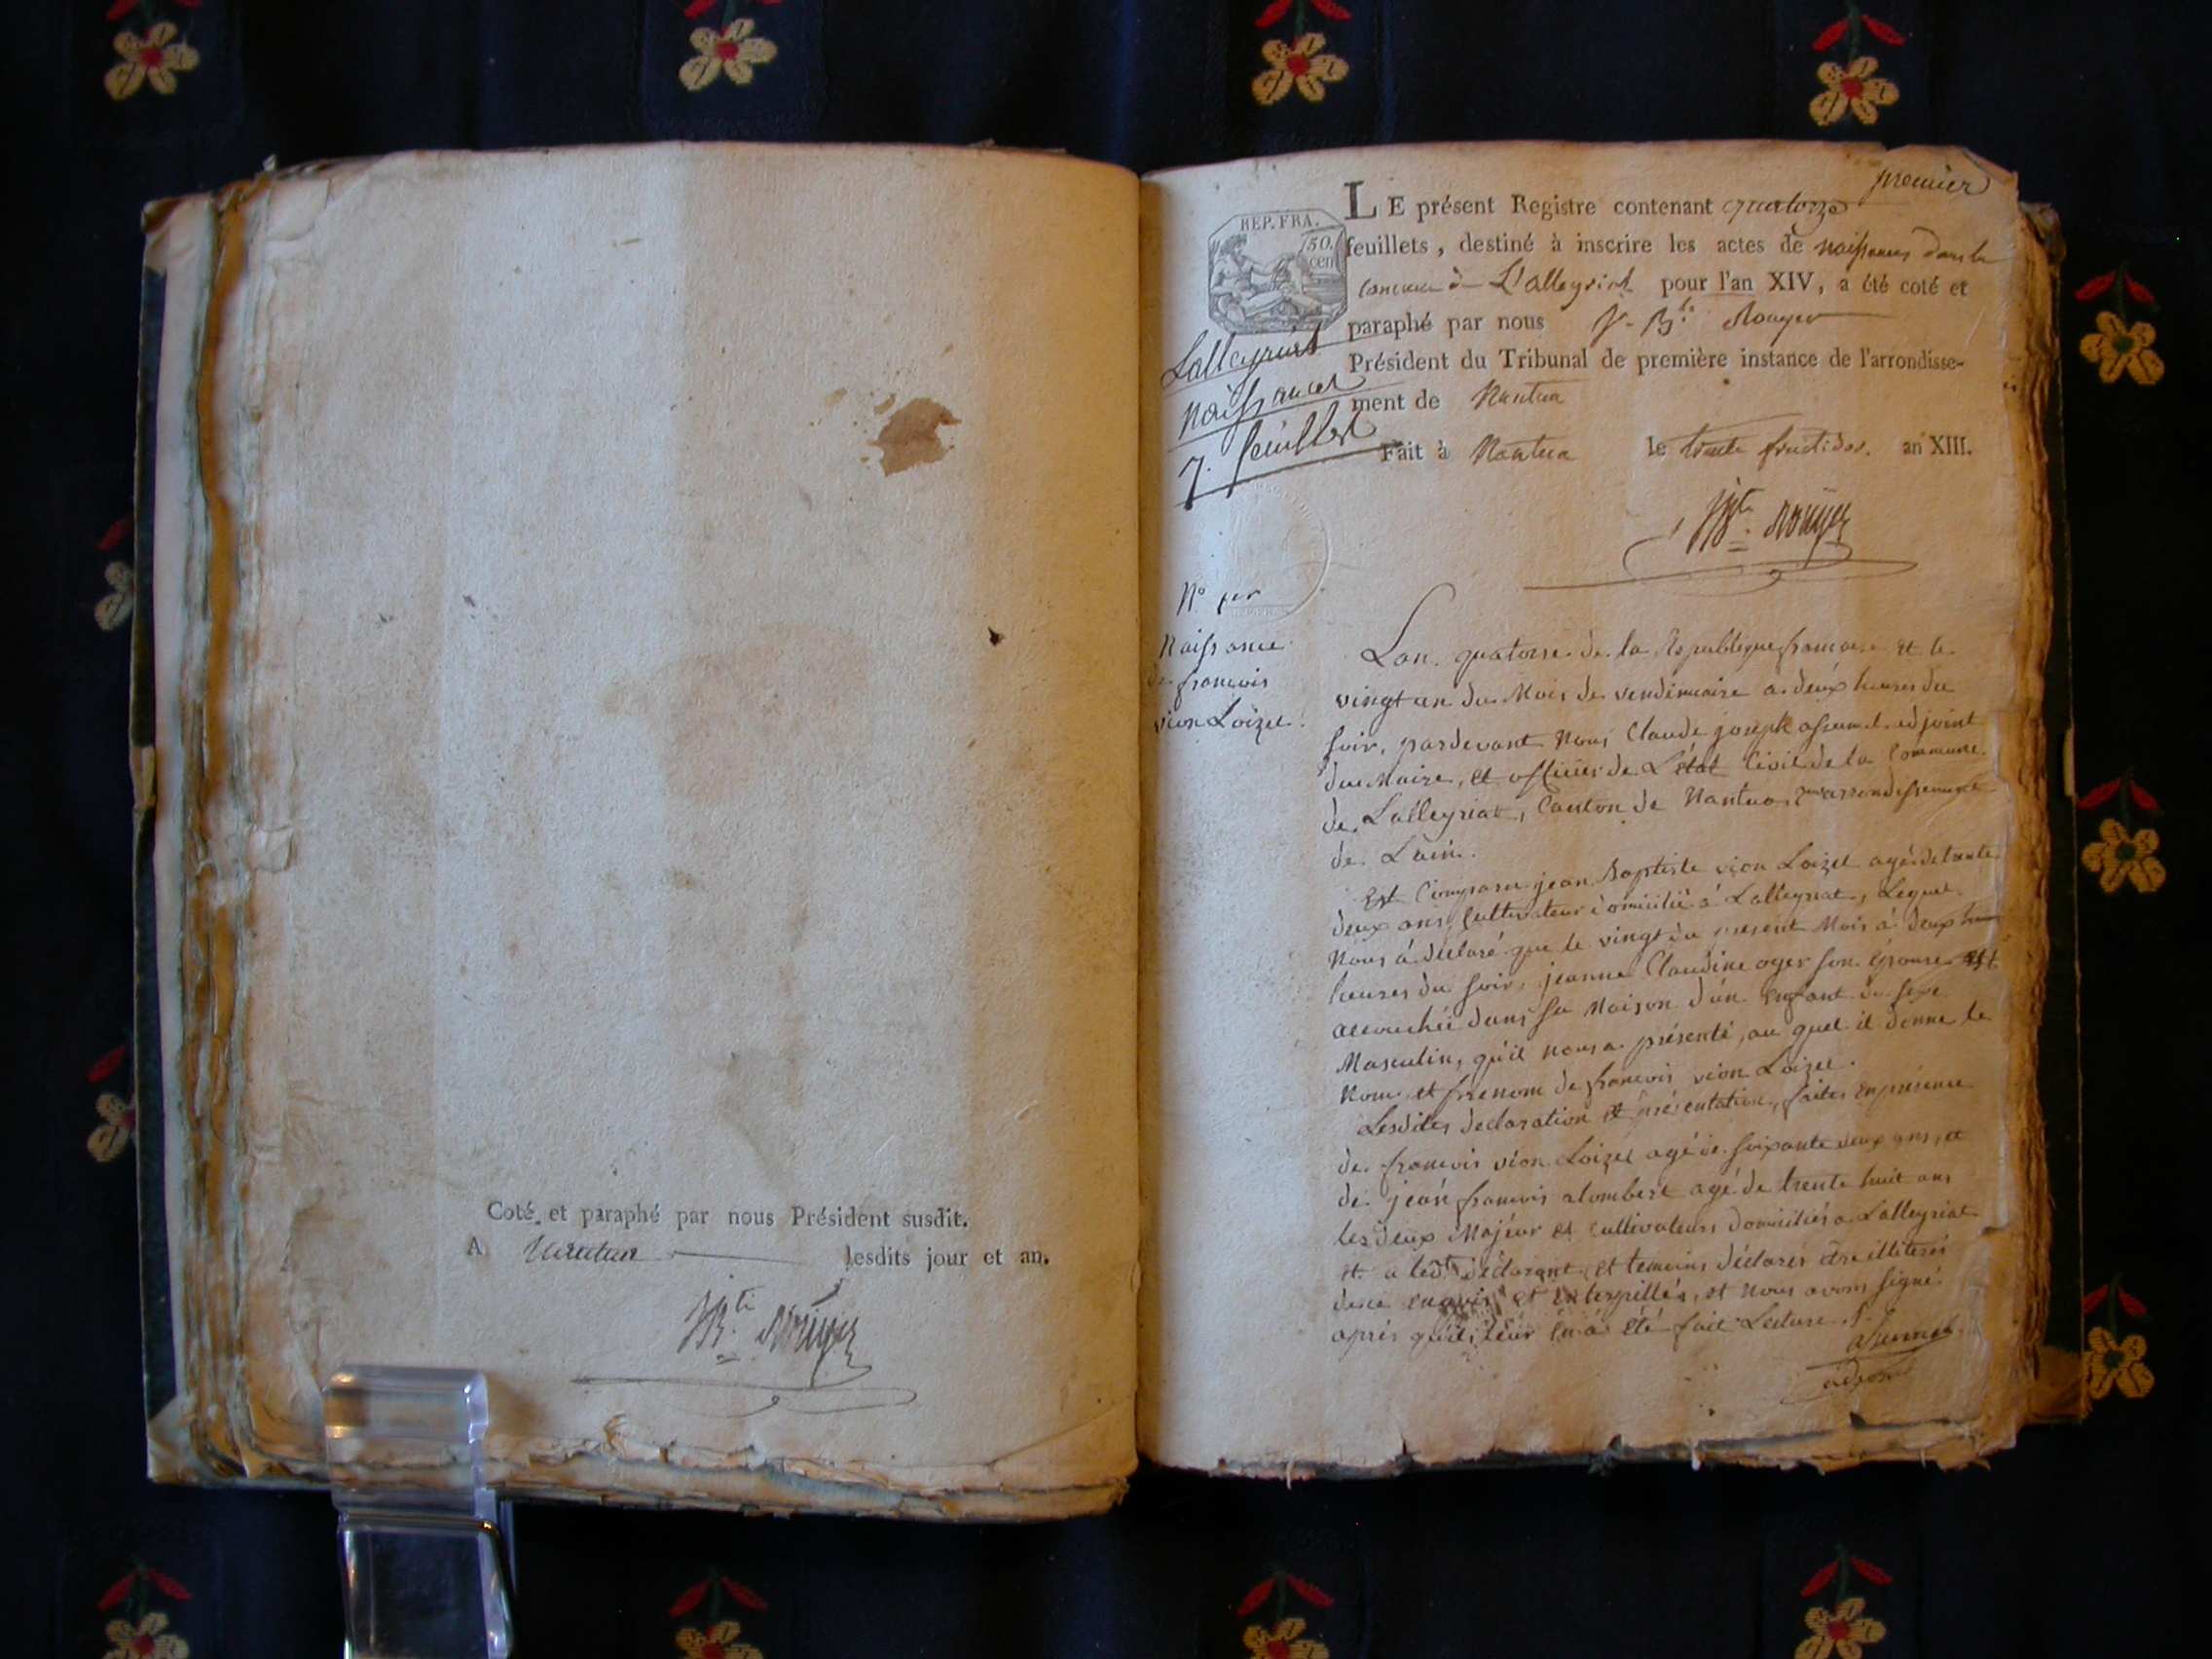 Coté et paraphé par nous Président susdit.
A Nantua lesdits jour et an.
JBte. Rouyer
premier
REP. FRA.
50.
cen
LE présent Registre contenant quatorze
feuillets, destiné à inscrire les actes de naissances dans la
commune de L'alleyriat pour l'an XIV, a été coté et
paraphé par nous J. Bte. Rouyer
Président du Tribunal de première instance de l'arrondisse-
ment de Nantua
Fait à Nantua le trente fructidor. an XIII.
JBte. Rouyer
Lalleyriat
Naissances
7. feuillet
N° 1er
Naissance
de françois
vion Loizel.
Lan quatorse de la Republique francaise et le
vingt un du Mois de vendemiaire a deux heures du
soir, pardevant Nous Claude joseph assumel adjoint
du Maire, et officier de L'état Civil de la Commune
de Lalleyriat, Canton de Nantua, arrondissement
de Lain.
Est Comparu jean Baptiste vion Loizel agé de trente
deux ans Cultivateur domicilié à Lalleyriat, Lequel
Nous á déclaré que le vingt du present Mois à deux
heures du soir, jeanne Claudine oger son épouse est
accouchée dans sa Maison d'un Enfant du sexe
Masculin, qu'il nous a présenté, au quel il donne le
Nom et prenom de francois vion Loizel.
Lesdites declaration et présentation, faites en présence
de francois vion Loizel agé de soixante deux ans, et
de jean francois alombert agé de trente huit ans
les deux Majeur et cultivateurs domiciliés a Lalleyriat
et a led declarant et temoins déclarés être illiterés
de ce enquis et interpellés, et Nous avons signé
après qu'il leur en a été fait Lecture.
assumel
adjoint